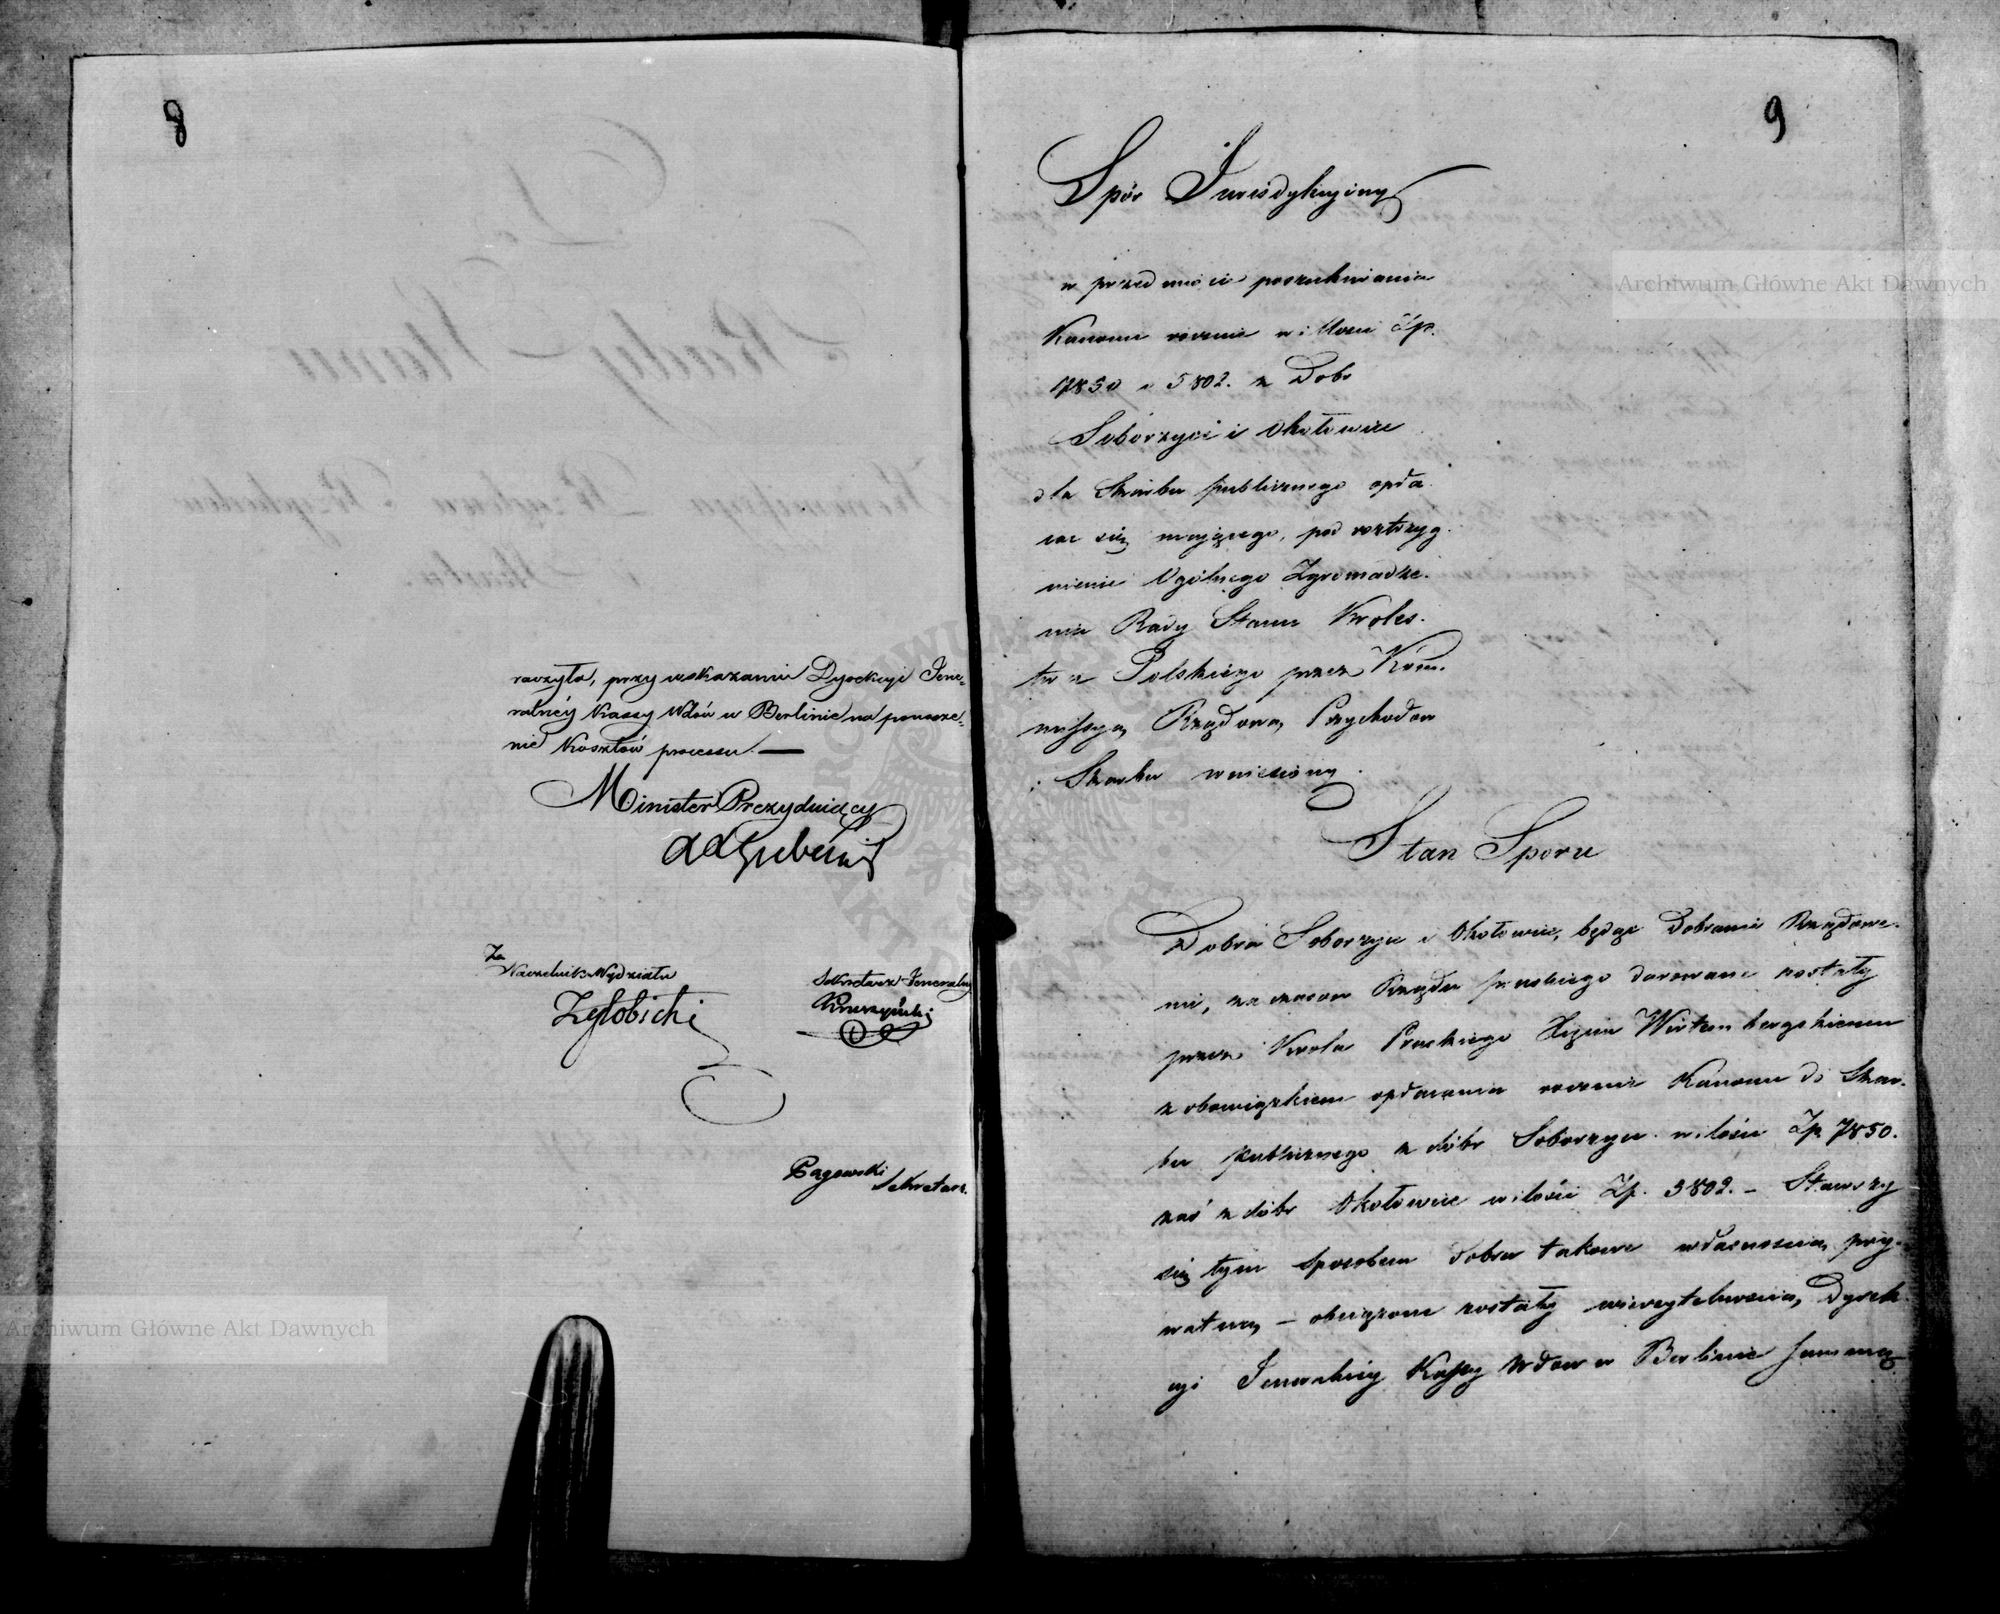 8
raczyła, przy wskazaniu Dyrekcyi Jene-
ralnéy Kassy Wdów w Berlinie na ponosze-
nie Kosztów processu. —
Minister Prezyduiący
Za
Naczelnik Wydziału
Sekretarz Jeneralny
Kruszyński
Sekretarz.
9
Spór Jurisdykcyiny
w przedmiocie poszukiwania
Kanonu rocznie w ilosci Złp.
7850 i 5802. z Dobr
Soborzyce i Okołowice
dla Skarbu publicznego opła
cac się maiącego, pod roztrzyg
nienie Ogólnego Zgromadze.
nia Rady Stanu Kroles.
twa Polskiego przez Kom.
missyą Rządową Przychodow
i Skarbu wniesiony.
Stan Sporu
Dobra Soborzyce i Okołowice, będąc Dobrami Rządowe.
mi, za czasow Rządu pruskiego darowane zostały
przez Krola Pruskiego Xięciu Wirtembergskiemu
z obowiązkiem opłacania rocznie Kanonu do Skar.
bu publicznego z dóbr Soborzyce w ilości Złp. 7850.
zaś z dóbr Okołowice w ilości Złp. 5802. – Stawszy
się tym sposobem dobra takowe własnoscią pry-
watną, – obciążone zostały wierzytelnoscią Dyrek
cyi Jeneralnéy Kassy Wdow w Berlinie summą
Archiwum Główne Akt Dawnych
Archiwum Główne Akt Dawnych